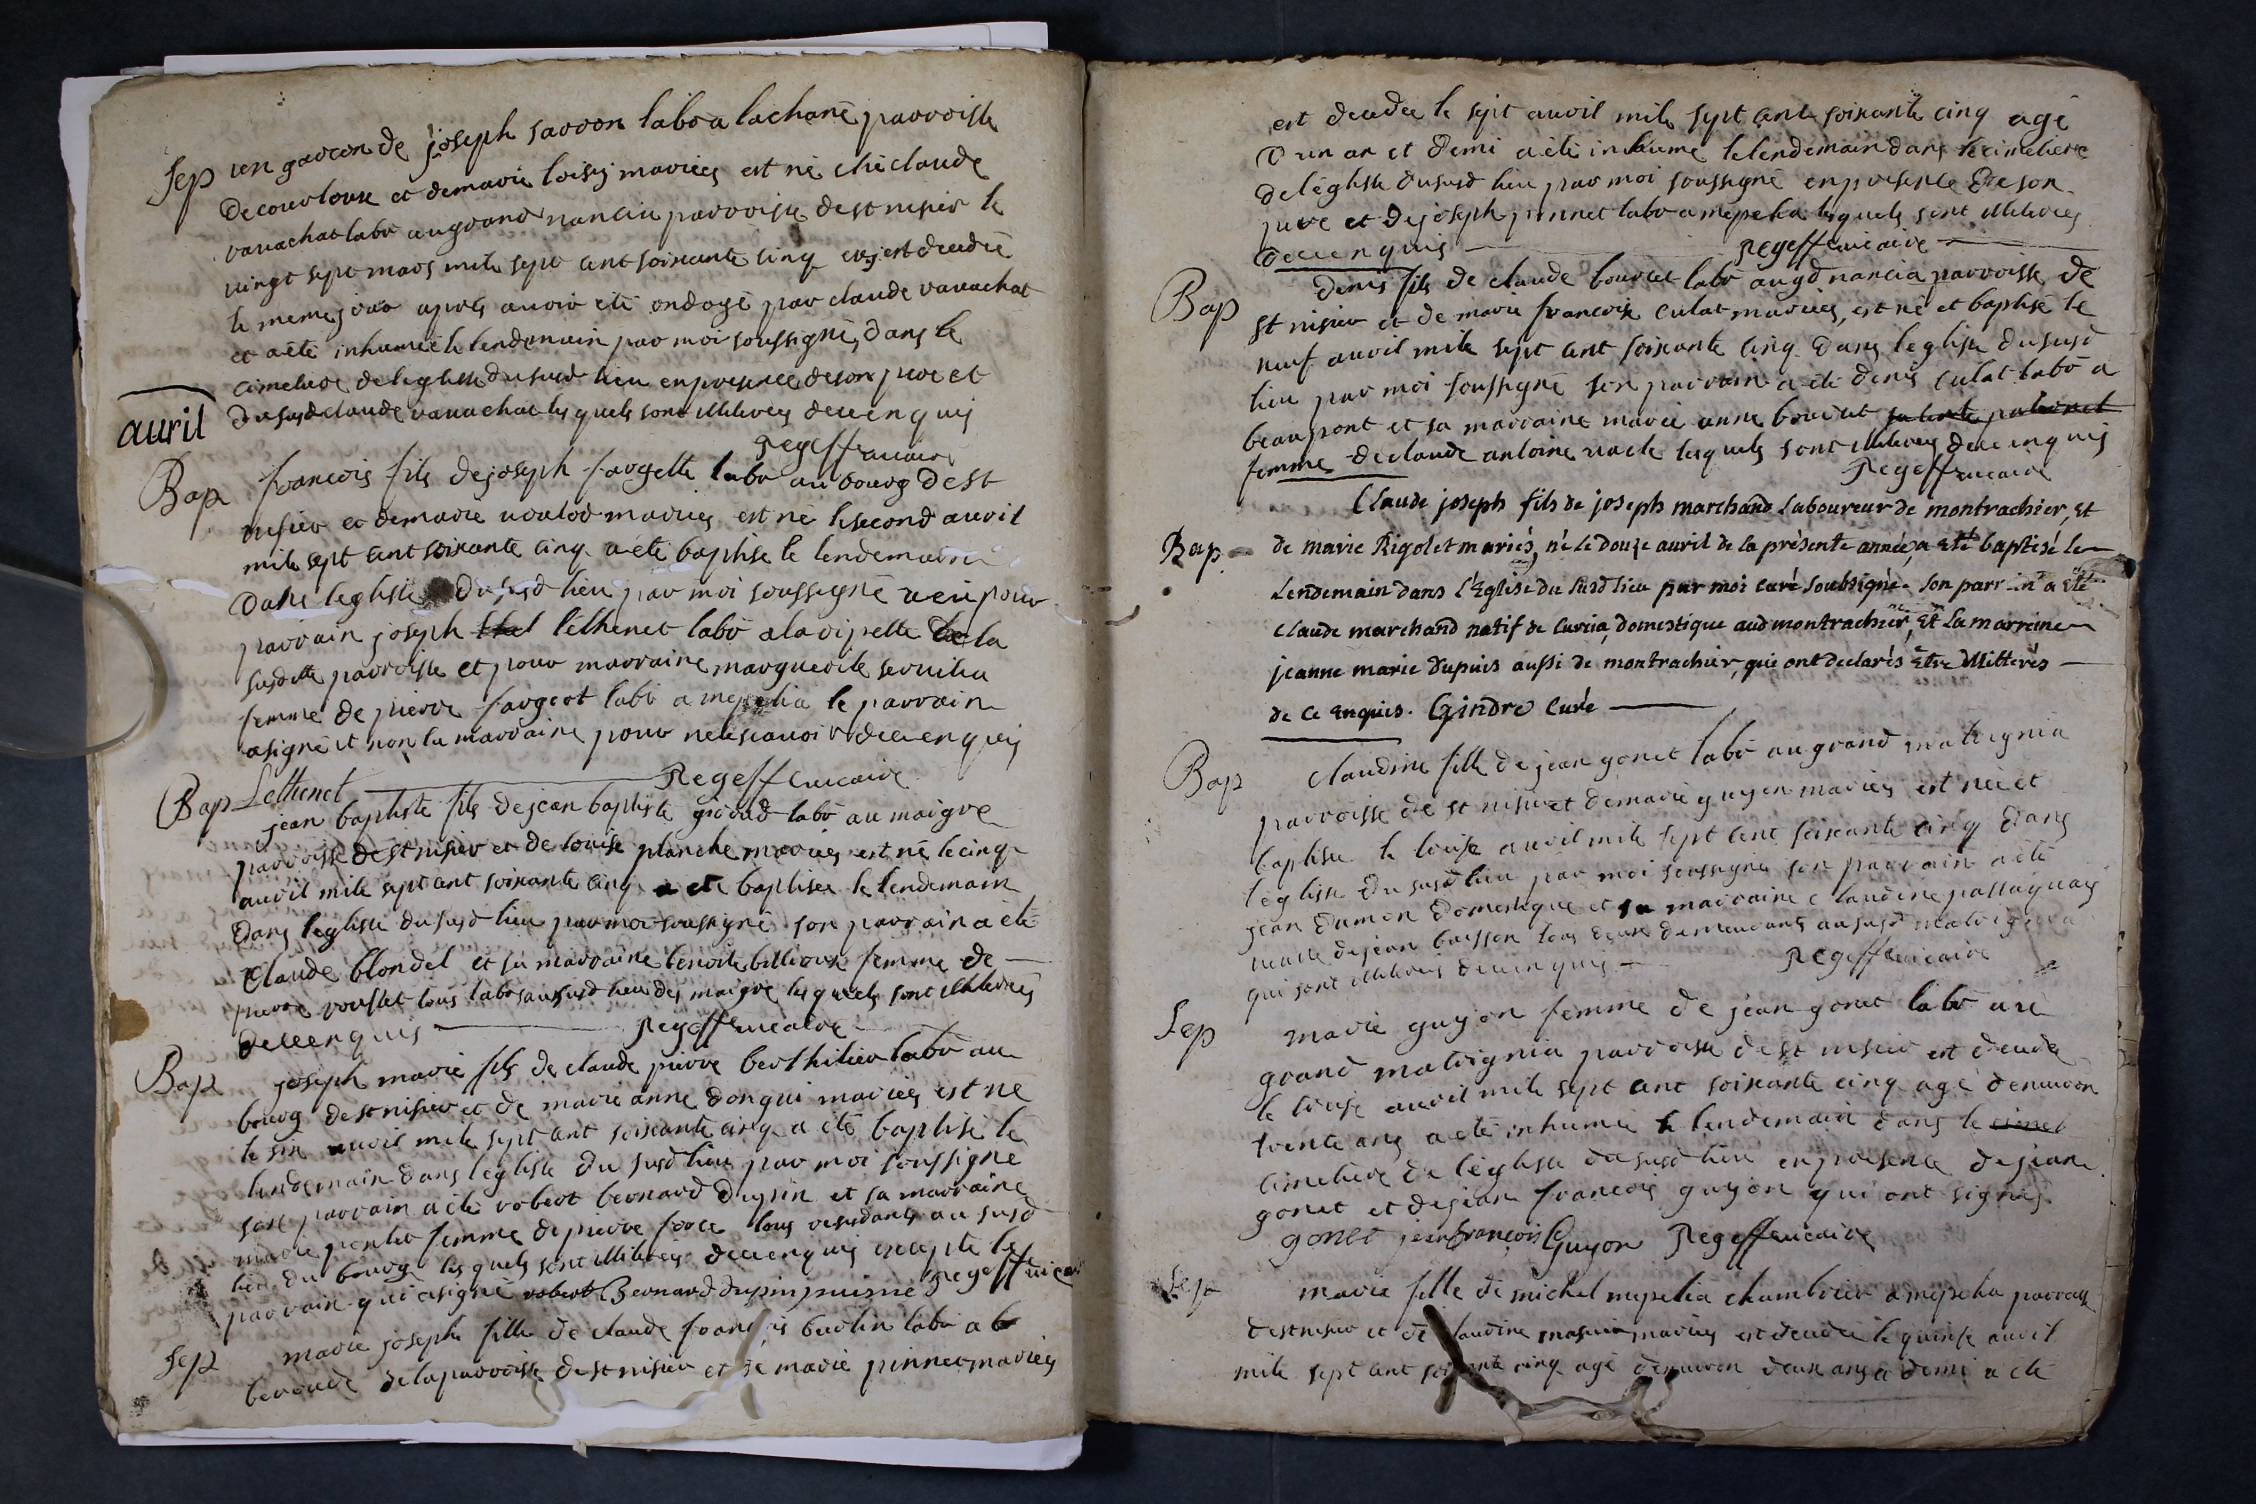 Sep un garcon de joseph sarron labr a lachane parroisse
decourtoux et demarie loisy mariées est né ché claude
vauachat labr augrand nancia parroisse destnisier le
vingt sept mars mile sept cent soixante cinq et est decedée
le meme jour apres avoir eté ondoyé par claude vauachat
et aété inhumé le lendemain par moi soussigné, dans le
cimetiere deleglisse dususd lieu enpresence deson pere et
dususd claude vauachat les quels sont illiterés decenquis
Regeffe vicaire
auril
Bap francois fils dejoseph fargette labr au bourg dest
nisier et demarie uoulod mariés est né lesecond avril
mile sept cent soixante cinq aété baptisé le lendemain
dans leglisse dususd lieu par moi soussigné
parrain joseph lethenet labr alavipelle de la
susdtte parroisse et pour marraine marguerite seruilia
femme de pierre fargeot labr a mepelia le parrain
asigné et non la marraine pour nelescavoir decenquis
Lethenet Regeffe vicaire
Bap jean baptiste fils dejean baptiste giroud labr au maigre
parroisse destnisier et de louise planche mariés est né lecinq
avril mile sept cent soixante cinq a eté baptisée le lendemain
dans leglisse dususd lieu par moi soussigné son parrain a été
Claude blondel et sa marraine benoite billioux femme de
pierre rousset tous labrs aususd lieu des maigre les quels sont illiterés
decenquis Regeffe vicaire
Bap joseph marie fils de claude pierre berthilier labr au
bourg destnisier et de marie anne donqui mariés est né
le six avril mile sept cent soixante cinq a été baptisé le
lendemain dans leglisse du susd lieu par moi soussigné
son parrain a été robert bernard dupin et sa marraine
marie femme de pierre tous residants au susd
lieu du bourg les quels sont illiterés decenquis excepté le
parrain qui asigné robert Bernard dupin puisné Regeffe vicaire
Sep marie joseph fille de claude francois burtin labr a la
beroude de la parroisse destnisier et de marie pinnet mariés
est decedée le sept avril mile sept cent soixante cinq agé
d'un an et demi a été inhumé le lendemain dans le cimetiere
deléglisse dususd lieu par moi soussigné enpresence de son
pere et dejoseph pinnet labr a mepelia les quels sont illiterés
decenquis Regeffe vicaire
Bap denis fils de claude bourcet labr augd nancia parroisse de
st nisier et de marie francoise culat mariés, est né et baptisé le
neuf avril mile sept cent soixante cinq dans leglisse dususd
lieu par moi soussigné son parrain a été denis culat labr a
beaupont et sa marraine marie anne bourcet
femme de claude antoine uacle les quels sont illiterés decenquis
Regeffe vicaire
Claude joseph fils de joseph marchand Laboureur de montrachier, Et
Bap. de marie Rigolet mariés, né le douze auril de la présente année, a Eté baptisé le
Lendemain dans l'Eglise du susd lieu par moi curé soubsigné. Son parrein a Eté
Claude marchand natif de Curcia, domestique aud montrachier, Et La marreine
jeanne marie Dupuis aussi de montrachier, qui ont declarés Être illitterés
de ce Enquis. Gindre Curé
Bap claudine fille de jean gonet labr augrand matrignia
parroisse de st nisier et demarie guyon mariés est née et
baptisée le treise avril mile sept cent soixante cinq dans
leglisse du susd lieu par moi soussigné son parrain a été
jean dumon domestique et sa marraine claudine passaquay
ueuve dejean buisson tous deux demeurants aususd matrignia
qui sont illiterés decenquis Regeffe vicaire
Sep marie guyon femme de jean gonet labr au
grand matrignia parroisse de st nisier est decedée
le treise avril mile sept cent soixante cinq agé denviron
trente ans a été inhumée le lendemain dans le cimet
cimetiere de léglisse dususd lieu enpresence dejean
gonet et dejean francois guyon qui ont signés
gonet jean françois Guyon Regeffe vicaire
Sep marie fille de michel mepelia chambrier a mepelia parroisse
destnisier et de claudine mariés est decedée le quinse avril
mile sept cent soixante cinq agé denviron deux ans et demi a été